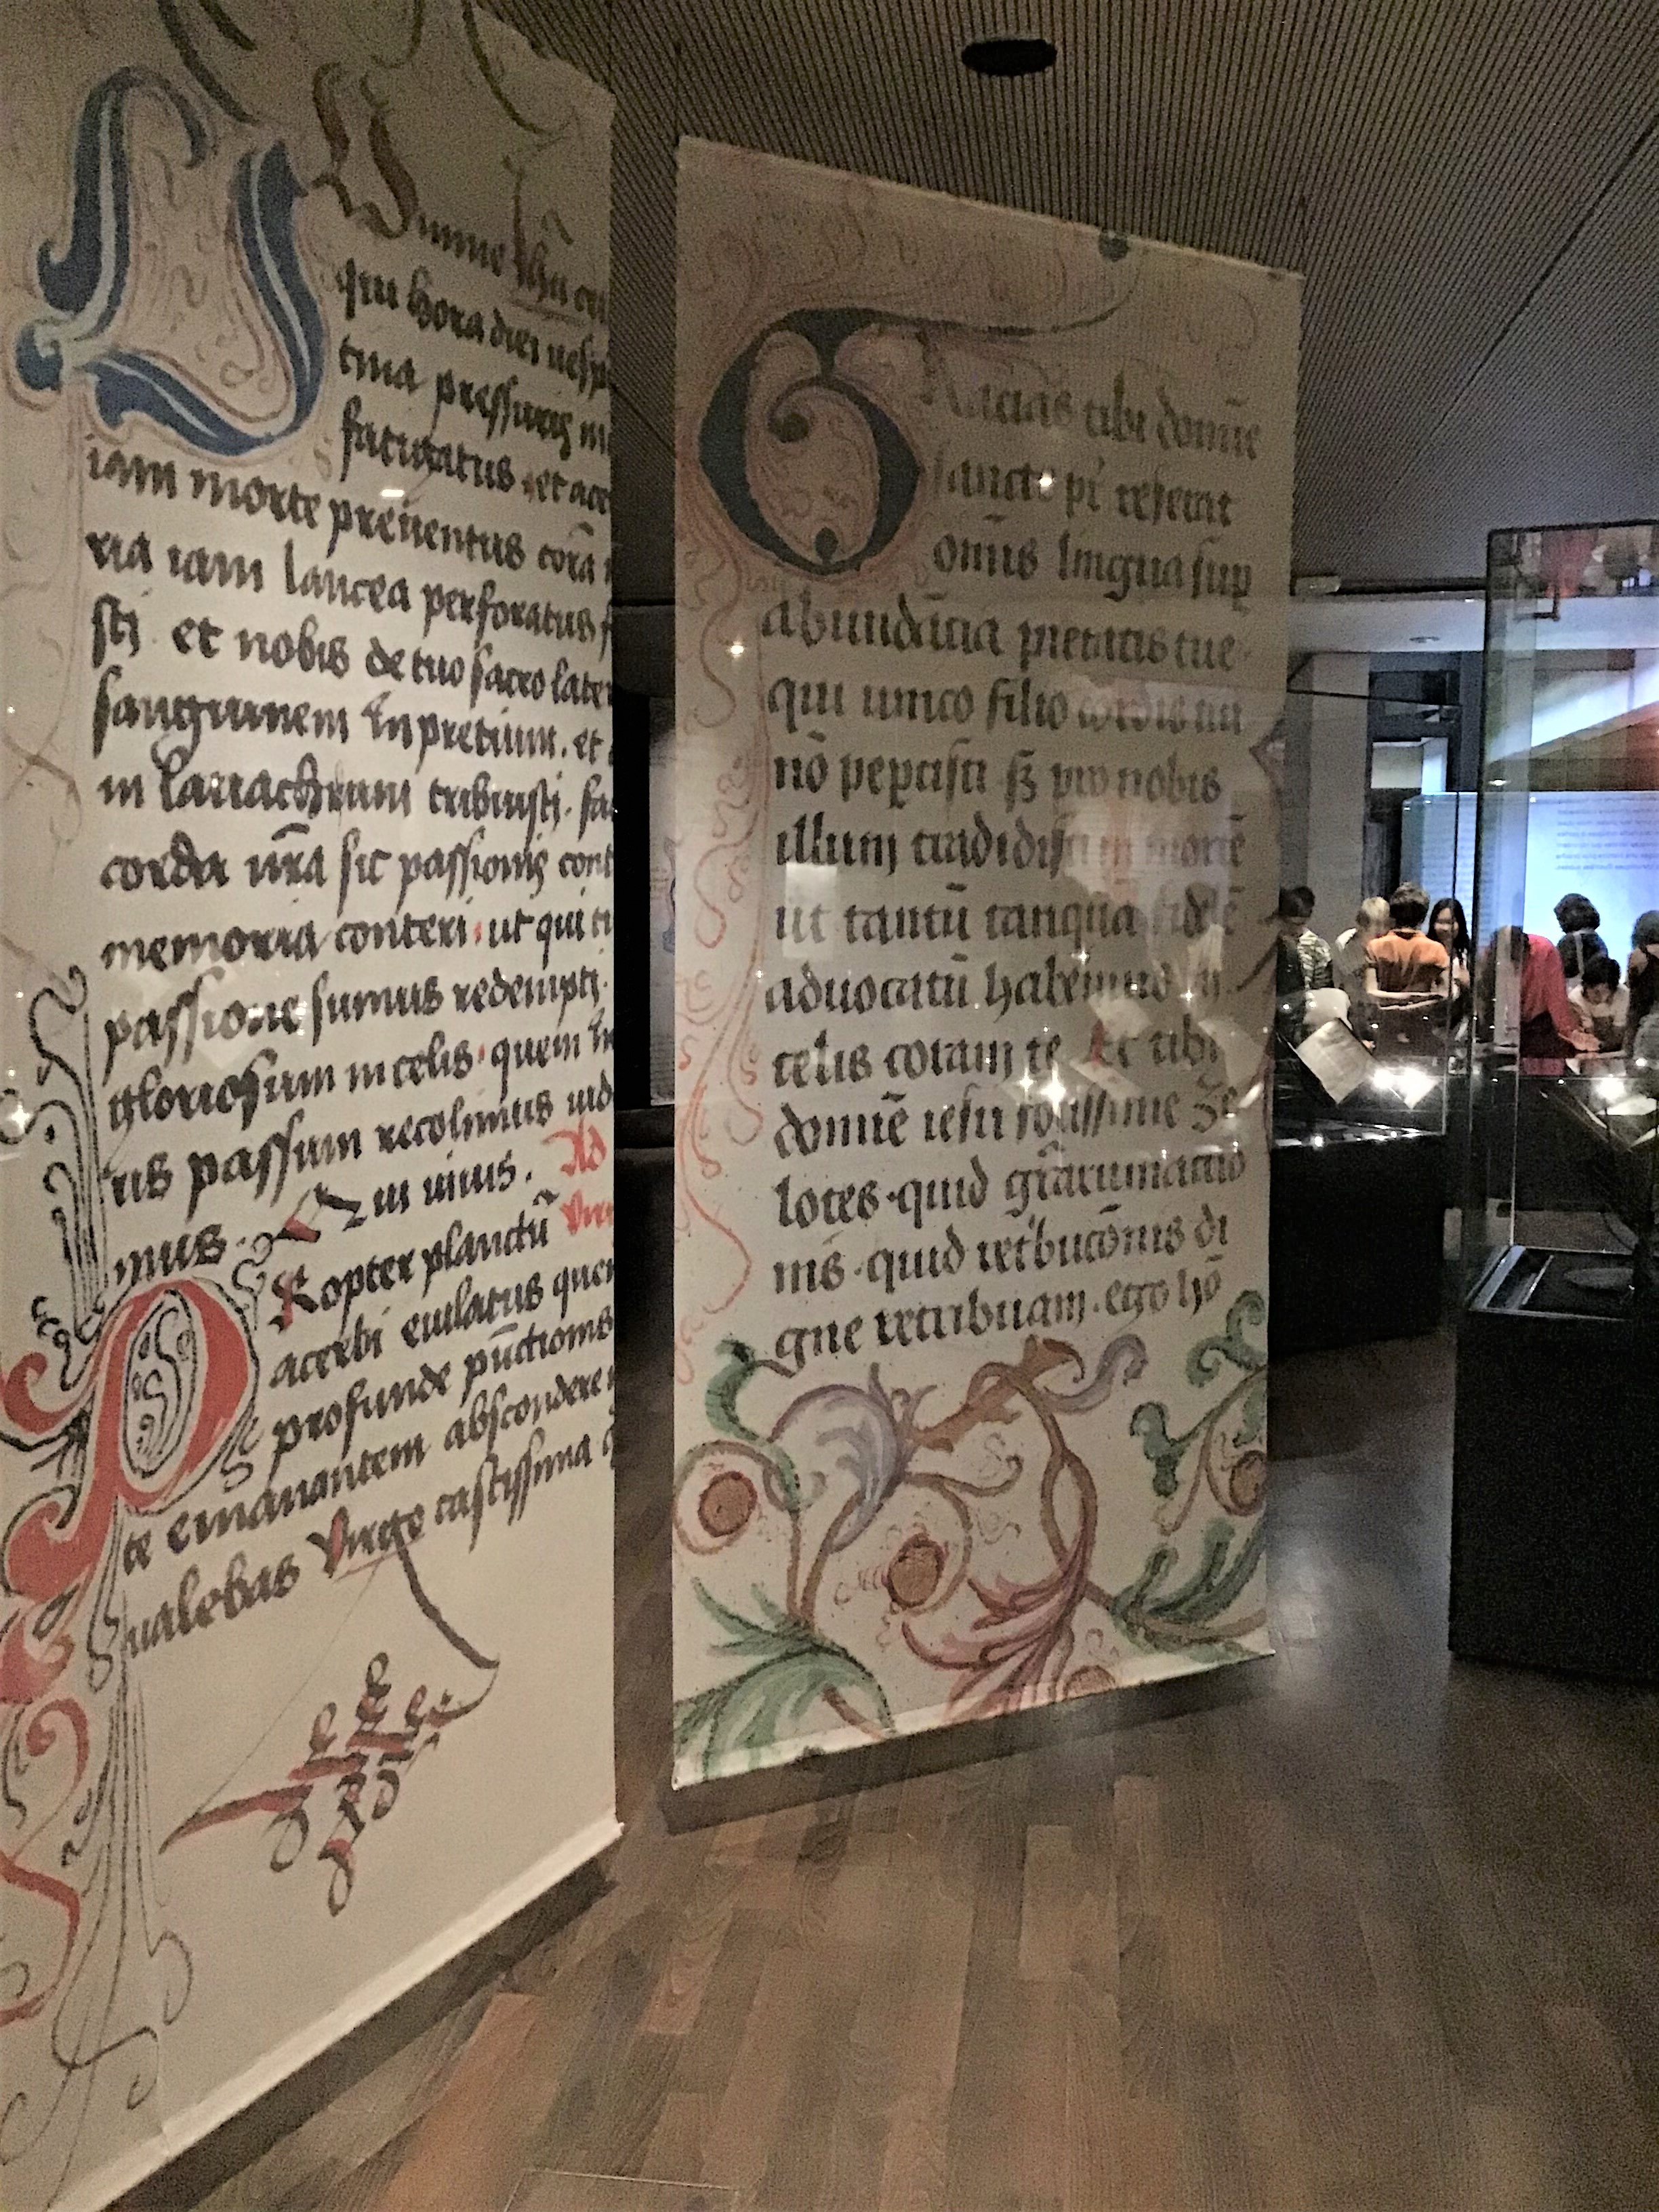 qui hora diei uesp
tina pressuris
saturatus et ace
iam morte preuentus corā
ria iam lancea perforatus
sti et nobis de tuo sacro late
sanguinem in pretium. et
in lauachrum tribuisti. fac
corda nr̄a sic passionis cont
memoria conteri. ut qui tu
passione sumus redempti.
gloriosum in celis. quem
us passum recolimus uid
mus. Qui uiuis. Ad
Propter planctū Virg
acerbi eiulatus quem
profunde pūctionis
te emanantem abscondere
ualebas Virgo castissima
GRacias tibi domīe
sancte pr̄ referat
omīs lingua sup
abundācia pietatis tue
qui unico filio cordis tui
nō pepcisti sꝫ pro nobis
illum tradidisti in mortē
ut tantū tanquā fidelē
aduocatū habeamus in
celis coram te Et tibi
domīe iesu fortissime Ze
lotes. quid gr̄arumactio
nis. quid ret'bucōnis di
gne retribuam. ego hō